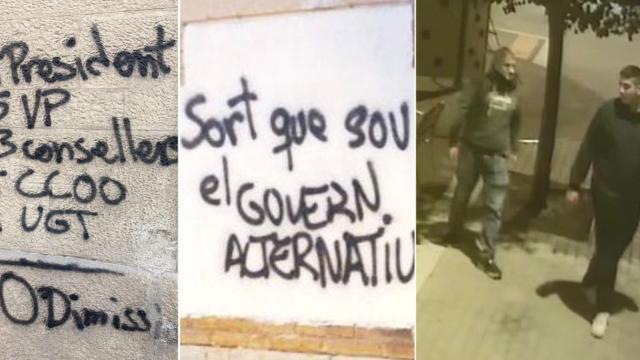 President
VP
3 consellers
CCOO
UGT
0 Dimissi
Sort que sou
el GOVERN
ALTERNATIU